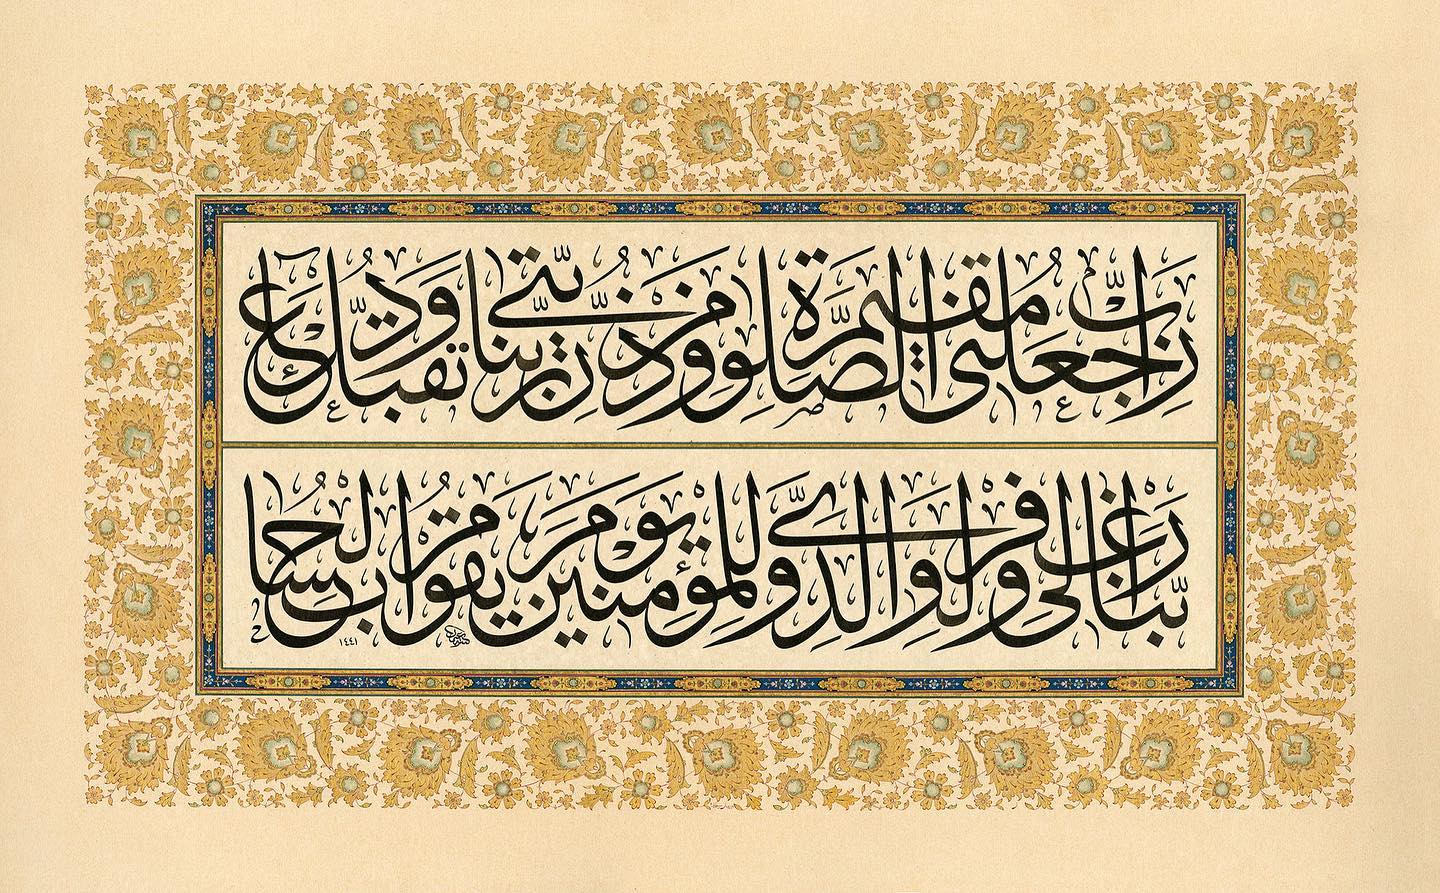 رَبِّ اجْعَلْنِي مُقِيمَ الصَّلٰوةِ وَمِنْ ذُرِّيَّتِي رَبَّنَا وَتَقَبَّلْ دُعَاءِ
رَبَّنَا اغْفِرْ لِي وَلِوَالِدَيَّ وَلِلْمُؤْمِنِينَ يَوْمَ يَقُومُ الْحِسَابُ
١٤٤١